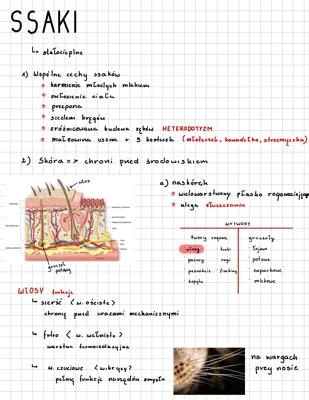 SSAKI
↳ stałocieplne
1) Wspólne cechy ssaków
karmienie młodych mlekiem
owłosienie ciała
przepona
siedem kręgów
zróżnicowana budowa zębów HETERODOTYZM
małżowina uszna + 3 kostek (młoteczek, kowadełko, strzemiączko)
2) Skóra => chroni przed środowiskiem
włos
gruczoł potowy
a) naskórek
wielowarstwowy płasko rogowaciejący
ulega złuszczaniu
WYTWORY
twory rogowe
gruczoły
włosy
łuski
łojowe
pazury
rogi
potowe
paznokcie
zapachowe
kopyta
mlekowe
WŁOSY funkcje
↳ sierść <w. ościste>
chronią przed urazami mechanicznymi
↳ futro <w. wełniste>
warstwa termoizolacyjna
↳ w. czuciowe <wibrysy>
pełnią funkcję narządów zmysłu
na wargach
przy nosie